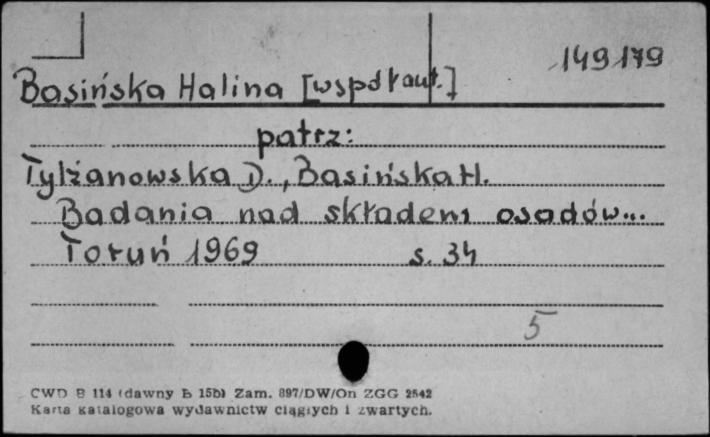 149179
Basińska Halina [współaut.]
patrz:
Tylżanowska D., Basińska H.
Badania nad składem osadów...
Toruń 1969 s. 34
5
CWD B 114 (dawny B 15b) Zam. 897/DW/On ZGG 2542
Karta katalogowa wydawnictw ciągłych i zwartych.